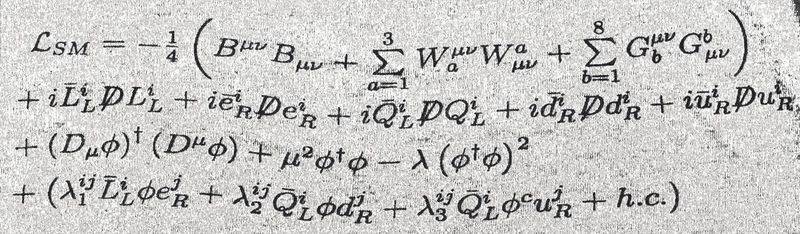 $\mathcal{L}_{SM} = -\frac{1}{4} \left( B^{\mu\nu} B_{\mu\nu} + \sum_{a=1}^{3} W_a^{\mu\nu} W_{\mu\nu}^a + \sum_{b=1}^{8} G_b^{\mu\nu} G_{\mu\nu}^b \right)$
$+ i\bar{L}_L^i \not{D} L_L^i + i\bar{e}_R^i \not{D} e_R^i + i\bar{Q}_L^i \not{D} Q_L^i + i\bar{d}_R^i \not{D} d_R^i + i\bar{u}_R^i \not{D} u_R^i$
$+ (D_\mu \phi)^\dagger (D^\mu \phi) + \mu^2 \phi^\dagger \phi - \lambda \left( \phi^\dagger \phi \right)^2$
$+ (\lambda_1^{ij} \bar{L}_L^i \phi e_R^j + \lambda_2^{ij} \bar{Q}_L^i \phi d_R^j + \lambda_3^{ij} \bar{Q}_L^i \phi^c u_R^j + h.c.)$